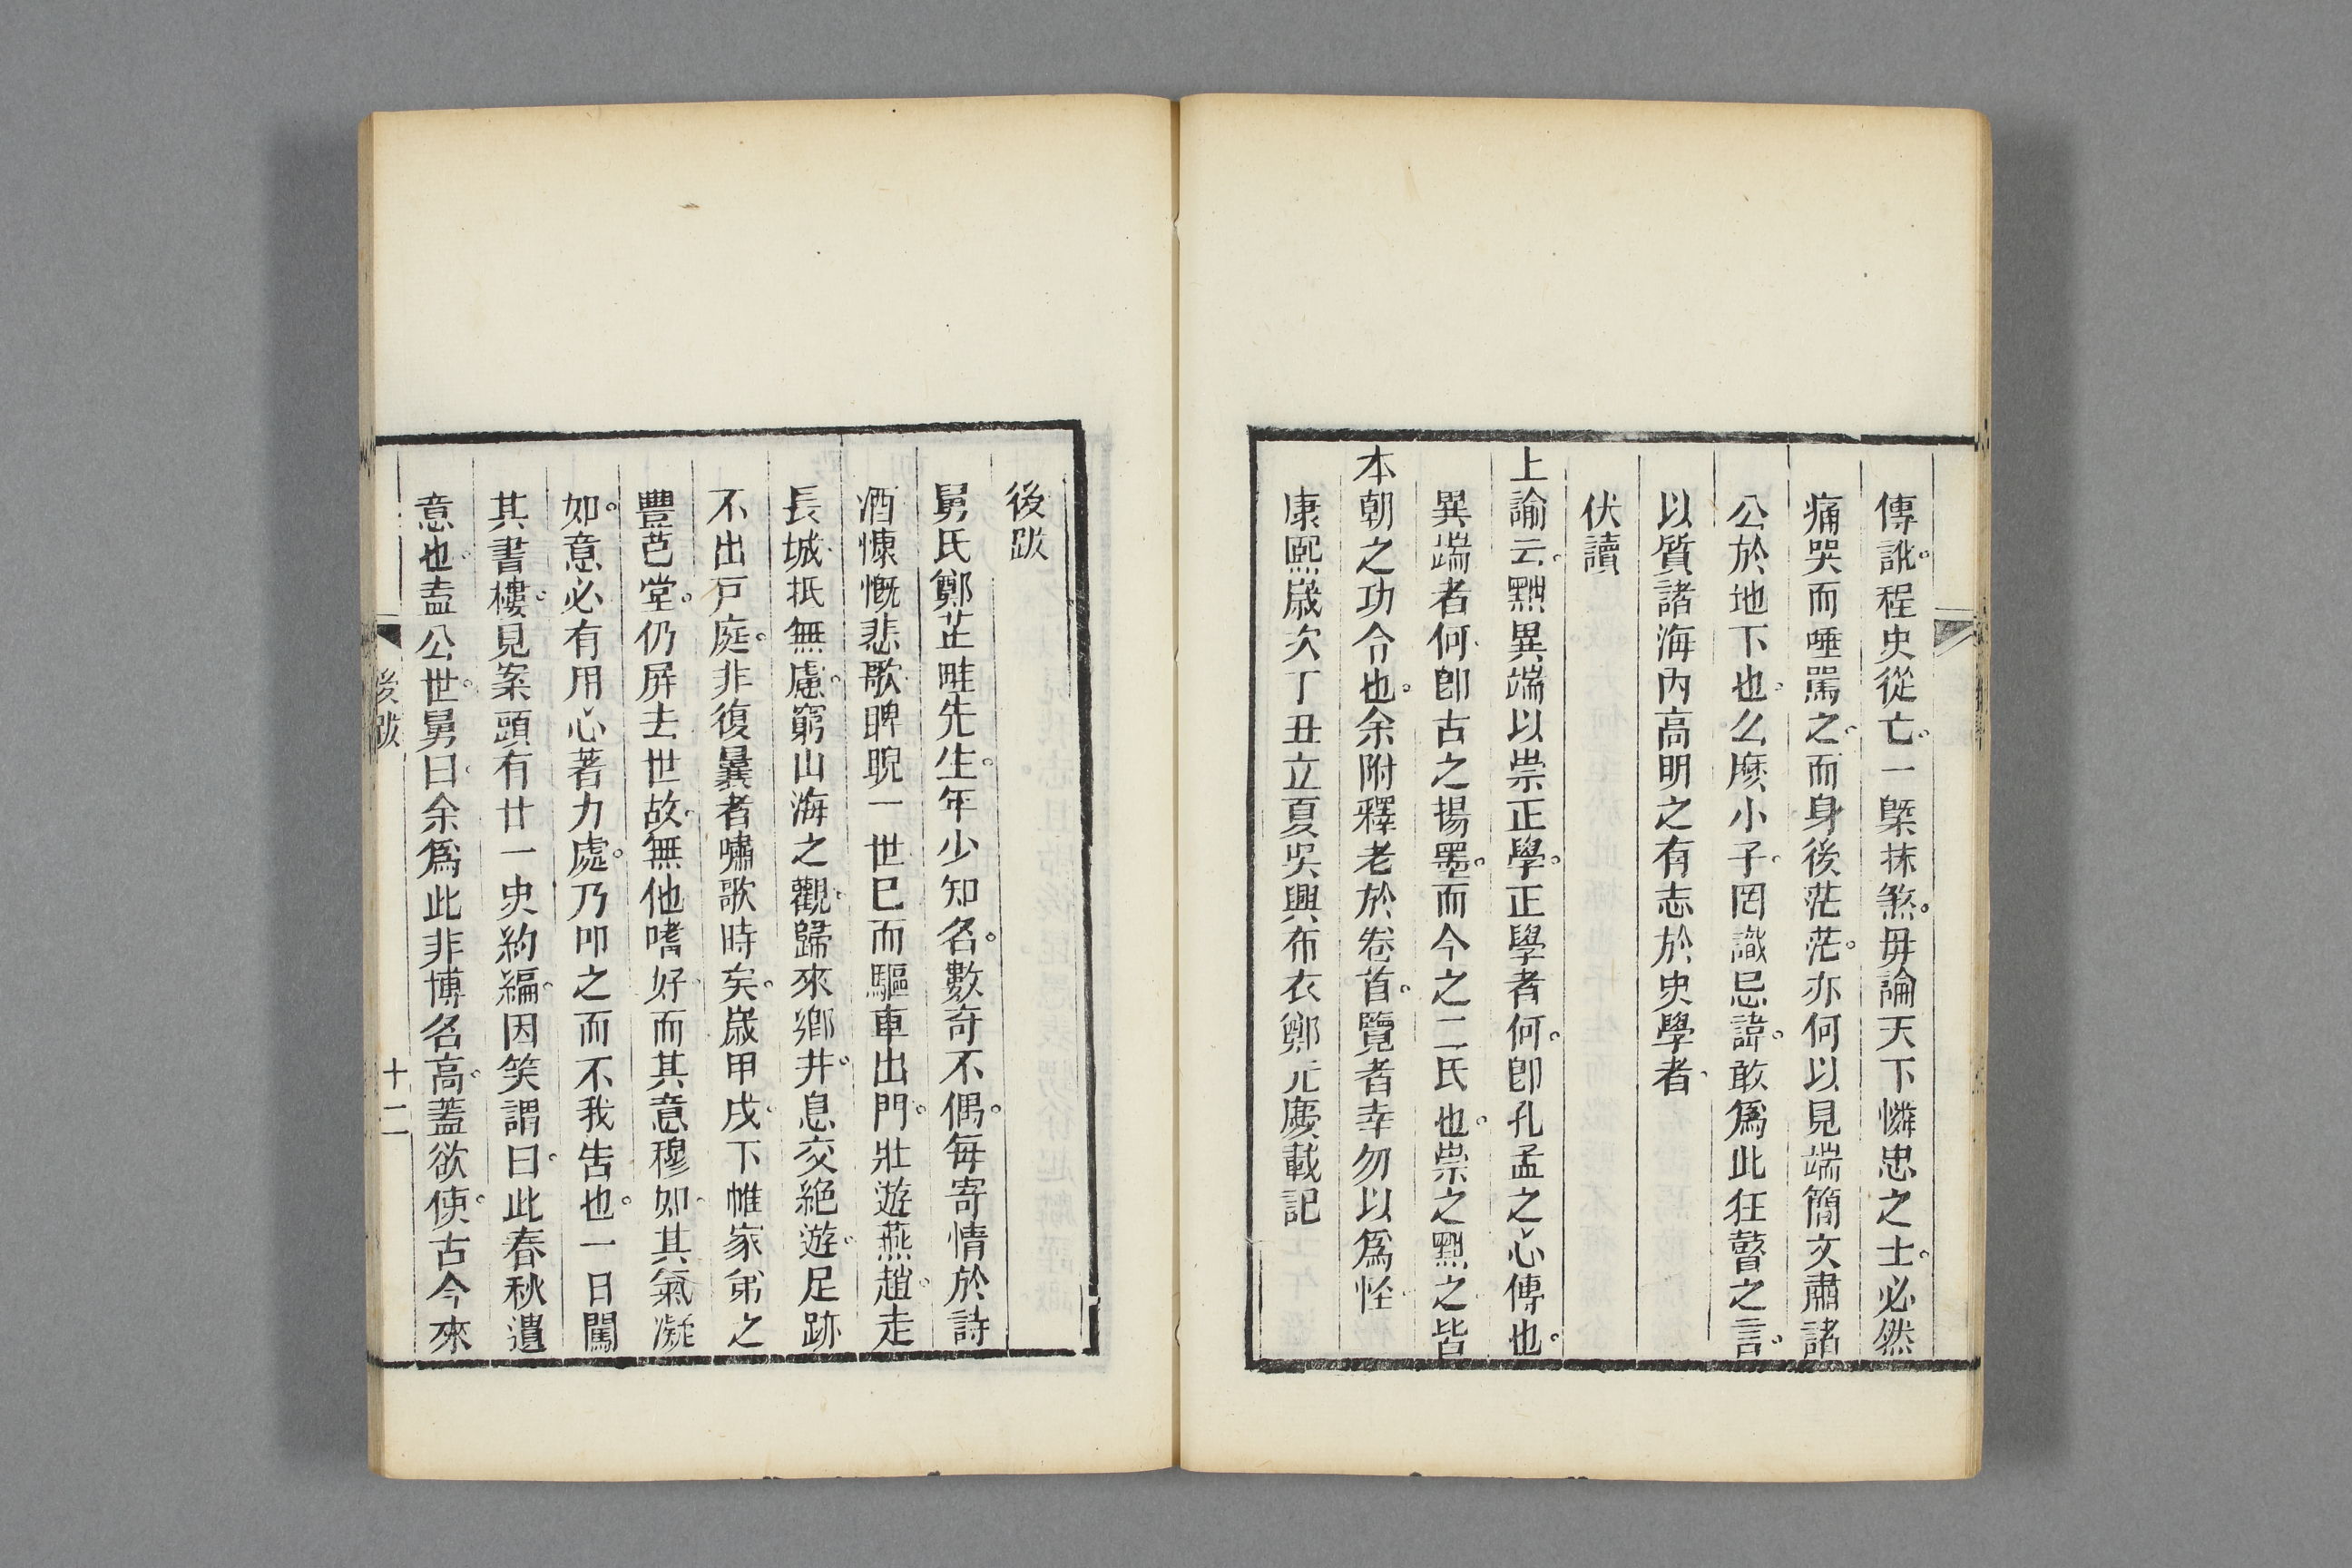 傳訛程史從亡一槩抹煞毋論天下憐忠之士必然
痛哭而唾罵之而身後茫茫亦何以見端簡文肅諸
公於地下也么麽小子罔識忌諱敢爲此狂瞽之言
以質諸海内高明之有志於史學者
伏讀
上諭云黜異端以崇正學正學者何卽孔孟之心傳也
異端者何卽古之揚墨而今之二氏也崇之黜之皆
本朝之功令也余附釋老於卷首覽者幸勿以爲怪
康熙歲次丁丑立夏吳興布衣鄭元慶載記
後跋
舅氏鄭芷畦先生年少知名數奇不偶每寄情於詩
酒慷慨悲歌睥睨一世已而驅車出門壯遊燕趙走
長城抵無慮窮山海之觀歸來鄉井息交絶遊足跡
不出戸庭非復曩者嘯歌時矣歲甲戌下帷家弟之
豐芑堂仍屏去世故無他嗜好而其意穆如其氣凝
如意必有用心著力處乃叩之而不我告也一日闖
其書樓見案頭有廿一史約編因笑謂曰此春秋遺
意也盍公世舅曰余爲此非博名高蓋欲使古今來
後跋
十二